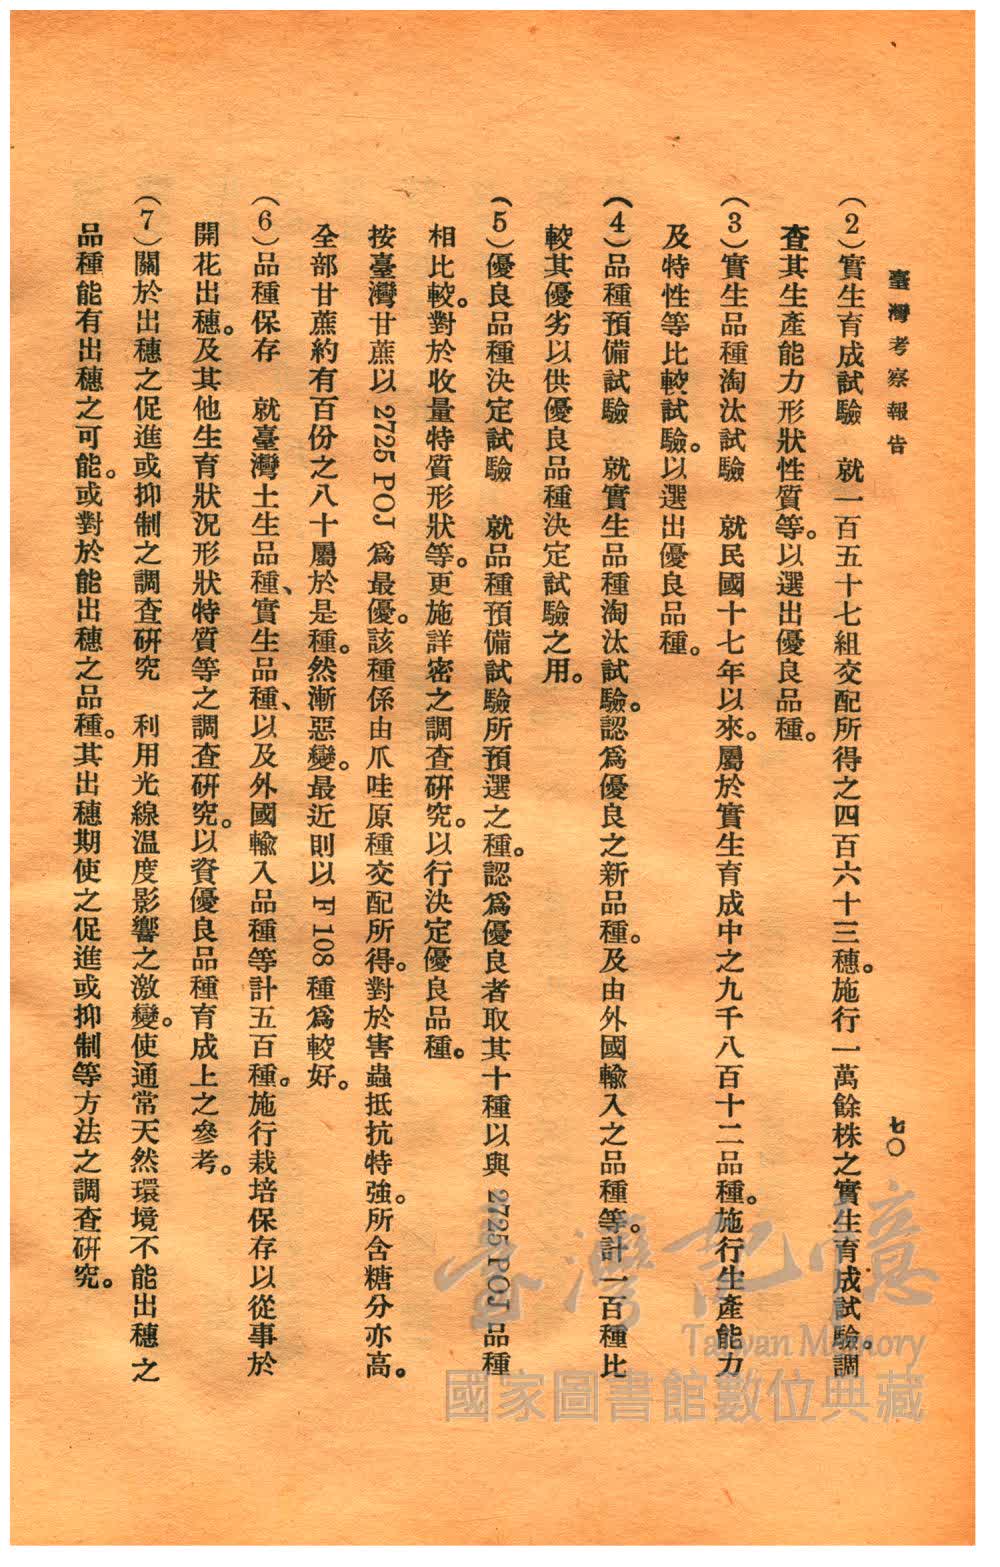 臺灣考察報告
七〇
(2)實生育成試驗　就一百五十七組交配所得之四百六十三穗。施行一萬餘株之實生育成試驗。調
查其生產能力形狀性質等。以選出優良品種。
(3)實生品種淘汰試驗　就民國十七年以來。屬於實生育成中之九千八百十二品種。施行生產能力
及特性等比較試驗。以選出優良品種。
(4)品種預備試驗　就實生品種淘汰試驗。認爲優良之新品種。及由外國輸入之品種等。計一百種比
較其優劣以供優良品種決定試驗之用。
(5)優良品種決定試驗　就品種預備試驗所預選之種。認爲優良者取其十種以與 2725 POJ 品種
相比較。對於收量特質形狀等。更施詳密之調查研究。以行決定優良品種。
按臺灣甘蔗以 2725 POJ 爲最優。該種係由爪哇原種交配所得。對於害蟲抵抗特強。所含糖分亦高。
全部甘蔗約有百份之八十屬於是種。然漸惡變。最近則以 F 108 種爲較好。
(6)品種保存　就臺灣土生品種、實生品種、以及外國輸入品種等計五百種。施行栽培保存以從事於
開花出穗。及其他生育狀況形狀特質等之調查研究。以資優良品種育成上之參考。
(7)關於出穗之促進或抑制之調查研究　利用光線溫度影響之激變。使通常天然環境不能出穗之
品種能有出穗之可能。或對於能出穗之品種。其出穗期使之促進或抑制等方法之調查研究。
臺灣記憶
Taiwan Memory
國家圖書館數位典藏